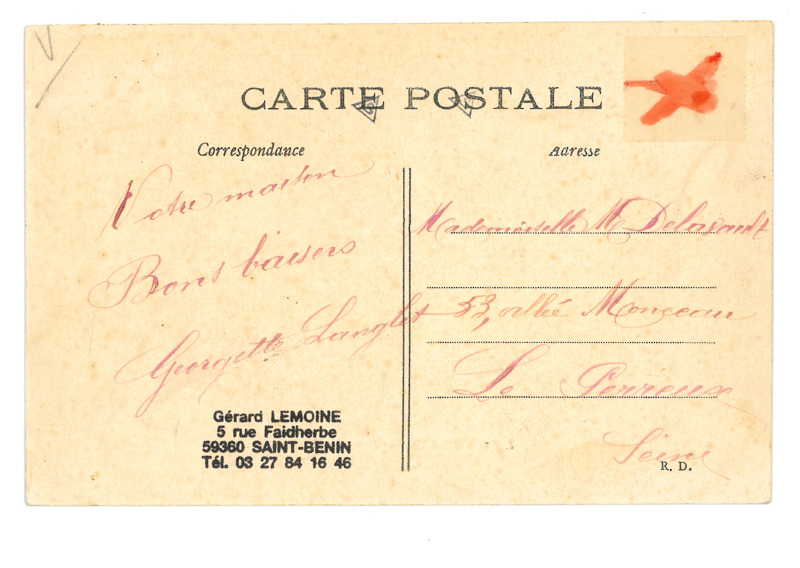 CARTE POSTALE
Correspondance
Adresse
Votre maison
Bons baisers
Georgette Langlet
Mademoiselle M Delasault
53, allée Monceau
Le Perreux
Seine
Gérard LEMOINE
5 rue Faidherbe
59360 SAINT-BENIN
Tél. 03 27 84 16 46
R. D.